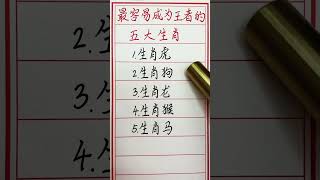 最容易成为王者的
五大生肖
1.生肖虎
2.生肖狗
3.生肖龙
4.生肖猴
5.生肖马